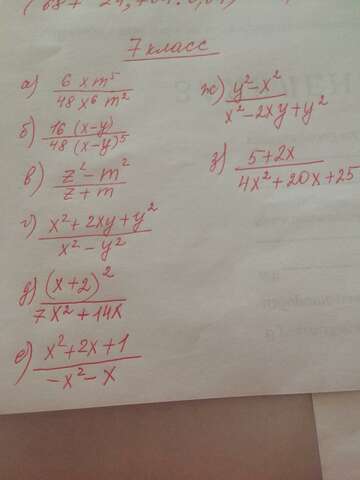 7 класс
а) 6xm⁵ / 48x⁶m²
б) 16(x-y) / 48(x-y)⁵
в) z²-m² / z+m
г) x²+2xy+y² / x²-y²
д) (x+2)² / 7x²+14x
е) x²+2x+1 / -x²-x
ж) y²-x² / x²-2xy+y²
з) 5+2x / 4x²+20x+25